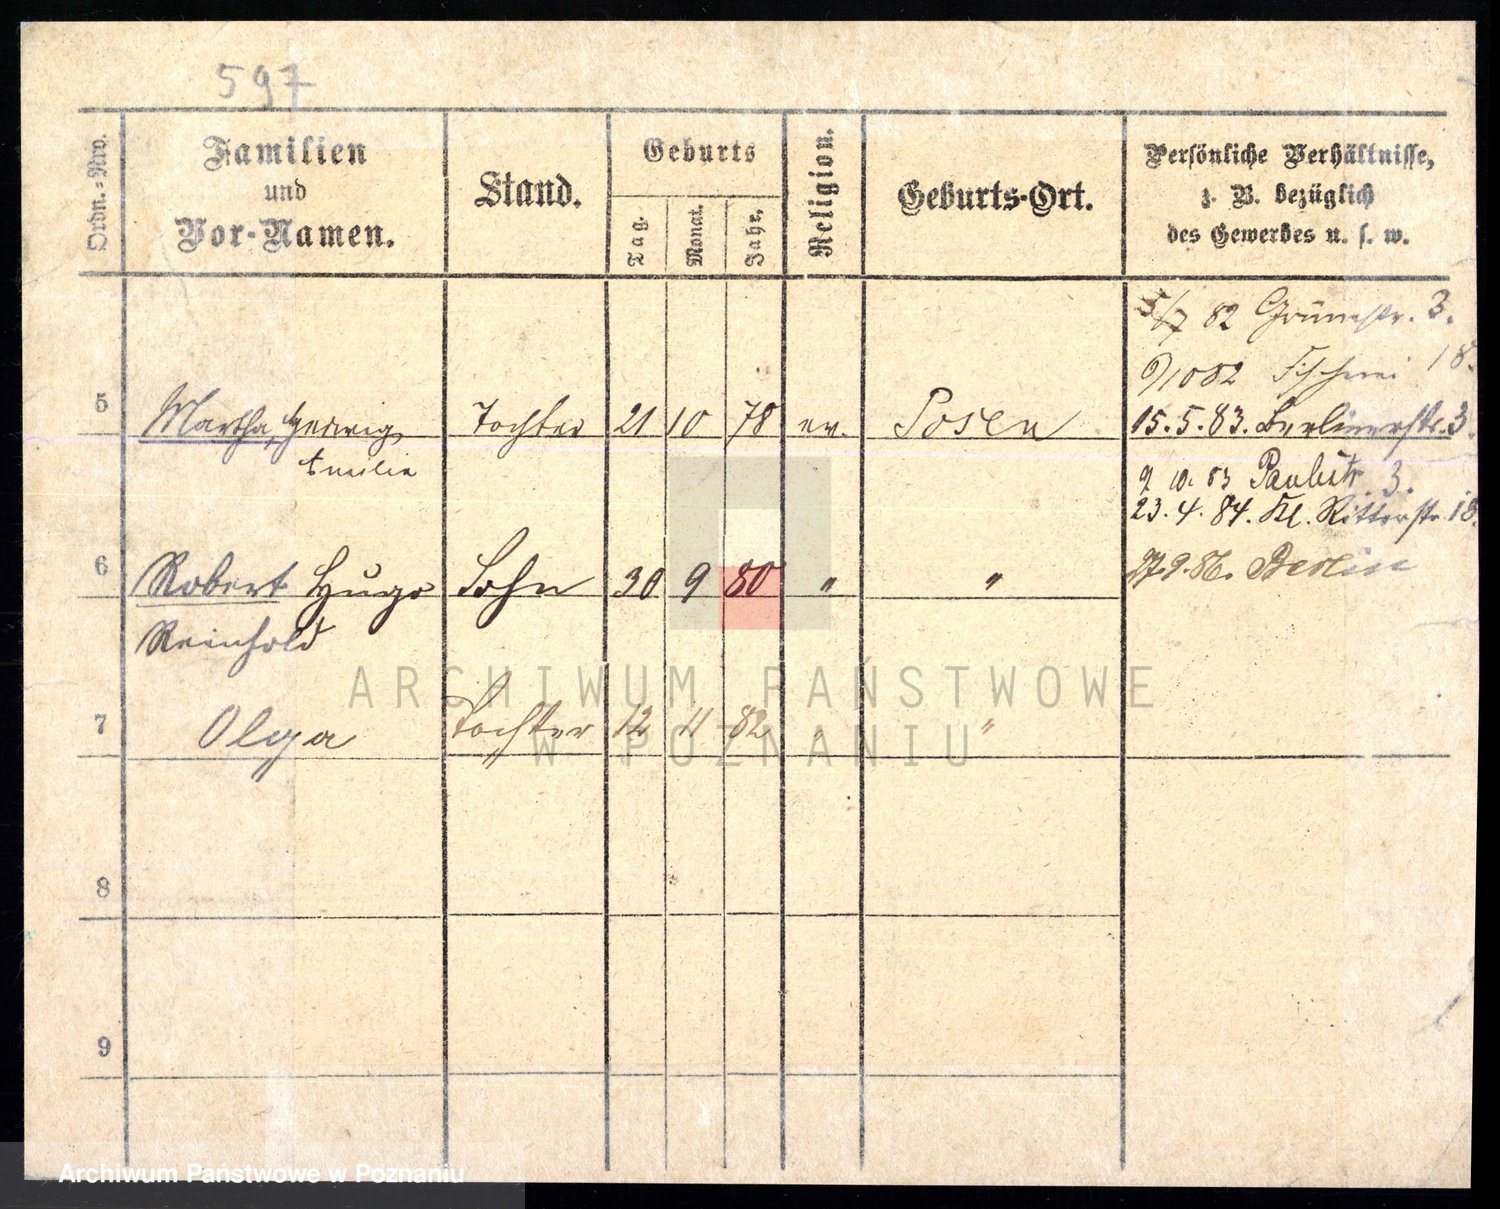 597
Ordn.-Nro.
Familien
und
Vor-Namen.
Stand.
Geburts
Tag.
Monat.
Jahr.
Religion.
Geburts-Ort.
Persönliche Verhältnisse,
z. B. bezüglich
des Gewerbes u. s. w.
5/7 82 Grünestr. 3.
9/10 82 Fischerei 18.
5 Martha, Hedwig Tochter 21 10 78 ev. Posen 15.5.83. Berlinerstr. 3.
Emilie
9 10. 83 Paulistr. 3.
23.4.84. Kl. Ritterstr. 18.
6 Robert Hugo Sohn 30 9 80 " " 27.9.86. Berlin
Reinhold
7 Olga Tochter 12 11 82 " "
8
9
ARCHIWUM PAŃSTWOWE
W POZNANIU
Archiwum Państwowe w Poznaniu